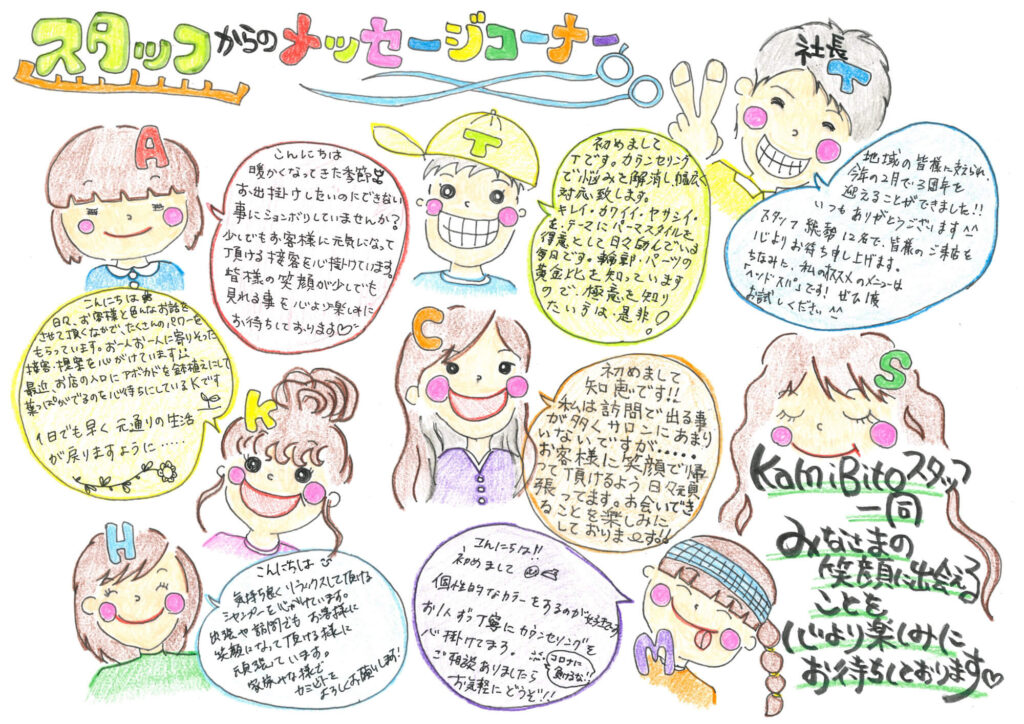 スタッフからのメッセージコーナー
社長
T
A
こんにちは
暖かくなってきた季節
お出掛けしたいのにできない
事にションボリしていませんか?
少しでもお客様に元気になって
頂ける接客を心掛けています。
皆様の笑顔が少しでも
見れる事を心より楽しみに
お待ちしております♡
T
初めまして
Tです。カウンセリング
で悩みを解消し、幅広く
対応致します。
キレイ・カワイイ・ヤサシイ・
を、テーマにパーマスタイルを
得意として日々励んでいる
毎日です。輪郭・パーツの
黄金比を知っています
ので、極意を知り
たい方は、是非
地域の皆様に支えられ、
今年の2月で、3周年を
迎えることができました!!
いつもありがとうございます^^
スタッフ総勢12名で、皆様のご来店を
心よりお待ち申し上げます。
ちなみに、私のオススメのメニューは
「ヘッドスパ」です!ぜひ1度
お試しください^^
こんにちは
日々、お客様と色んなお話を
させて頂くなかで、たくさんのパワーを
もらっています。お一人お一人に寄りそった
接客・提案を心がけています
最近、お店の入口にアボカドを鉢植えにして
葉っぱがでるのを心待ちにしているKです
1日でも早く元通りの生活
が戻りますように……
K
C
初めまして
知恵です!!
私は訪問で出る事
が多くサロンにあまり
いないですが……
お客様に笑顔で帰
って頂けるよう日々頑
張ってます。お会いでき
ることを楽しみに
しております!!
S
KamiBitoスタッフ
一同
みなさまの
笑顔に出会える
ことを
心より楽しみに
お待ちしております♡
H
こんにちは
気持ち良くリラックスして頂ける
シャンプーを心がけています。
出張や訪問でもお客様に
笑顔になって頂ける様に
頑張っています。
家族みな様で
カミビトを
よろしくお願いします!
こんにちは!!
初めまして
個性的なカラーをするのが
お1人ずつ丁寧にカウンセリングを
心掛けてます。
ご相談ありましたら
お気軽にどうぞ!!
コロナに
負けるな!!
M